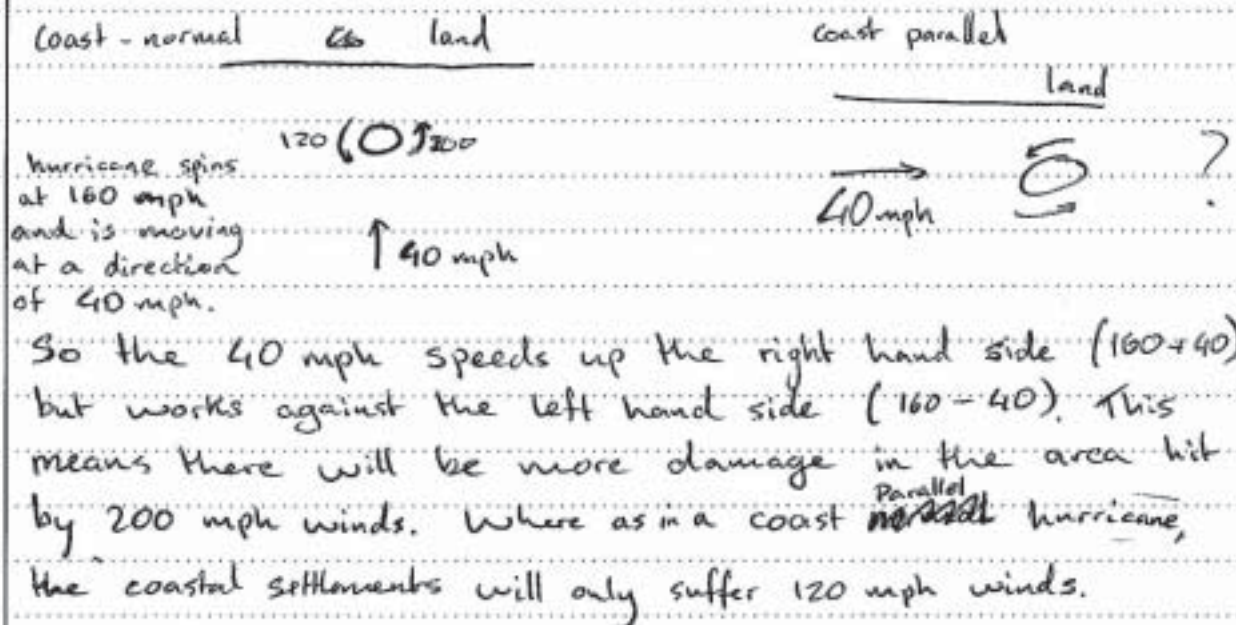 coast-normal land
coast parallel
land
120 200
hurricane spins
at 160 mph
and is moving
at a direction
of 40 mph.
40 mph
40 mph
?
So the 40 mph speeds up the right hand side (160+40)
but works against the left hand side (160-40). This
means there will be more damage in the area hit
by 200 mph winds. Where as in a coast Parallel hurricane,
the coastal settlements will only suffer 120 mph winds.